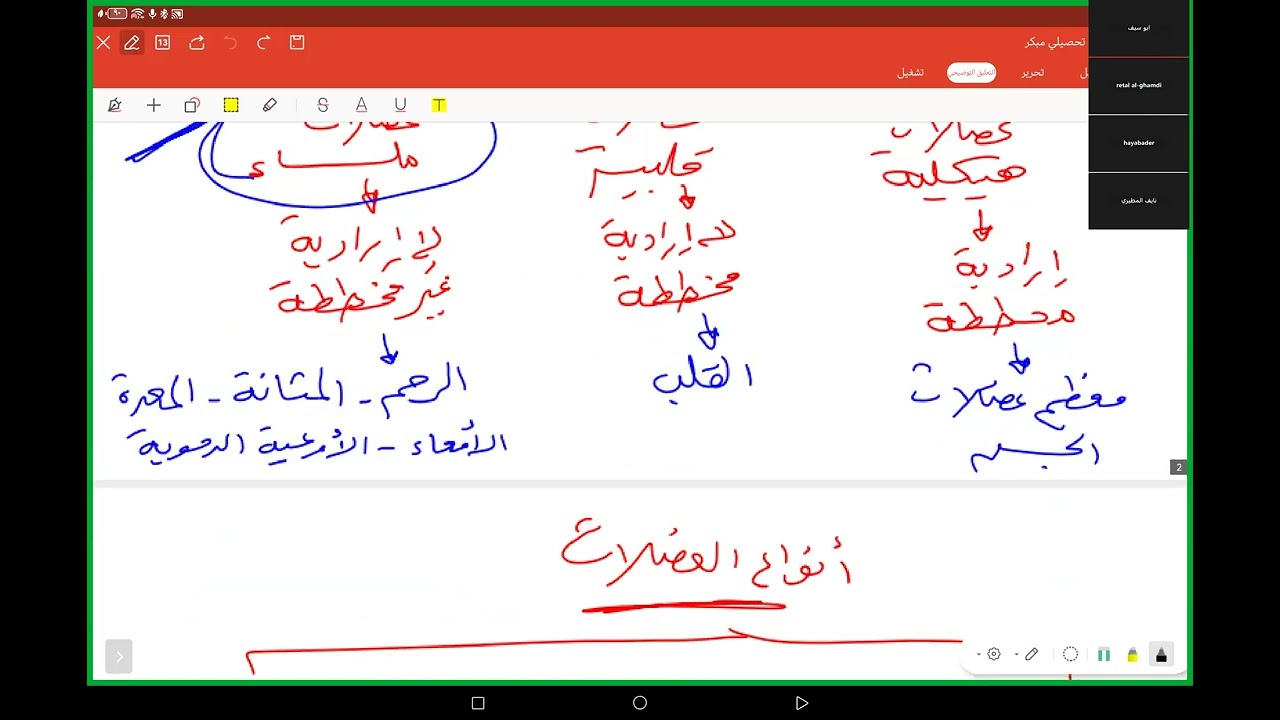 ابو سيف
retal al-ghamdi
hayabader
نايف المطيري
13
تحصيلي مبكر
تحرير
التعليق التوضيحي
تشغيل
S A U T
عضلات
هيكلية
إرادية
مخططة
معظم عضلات
الجسم
قلبية
لا إرادية
مخططة
القلب
عضلات
ملساء
لا إرادية
غير مخططة
الرحم - المثانة - المعدة
الأمعاء - الأوعية الدموية
2
أنواع العضلات